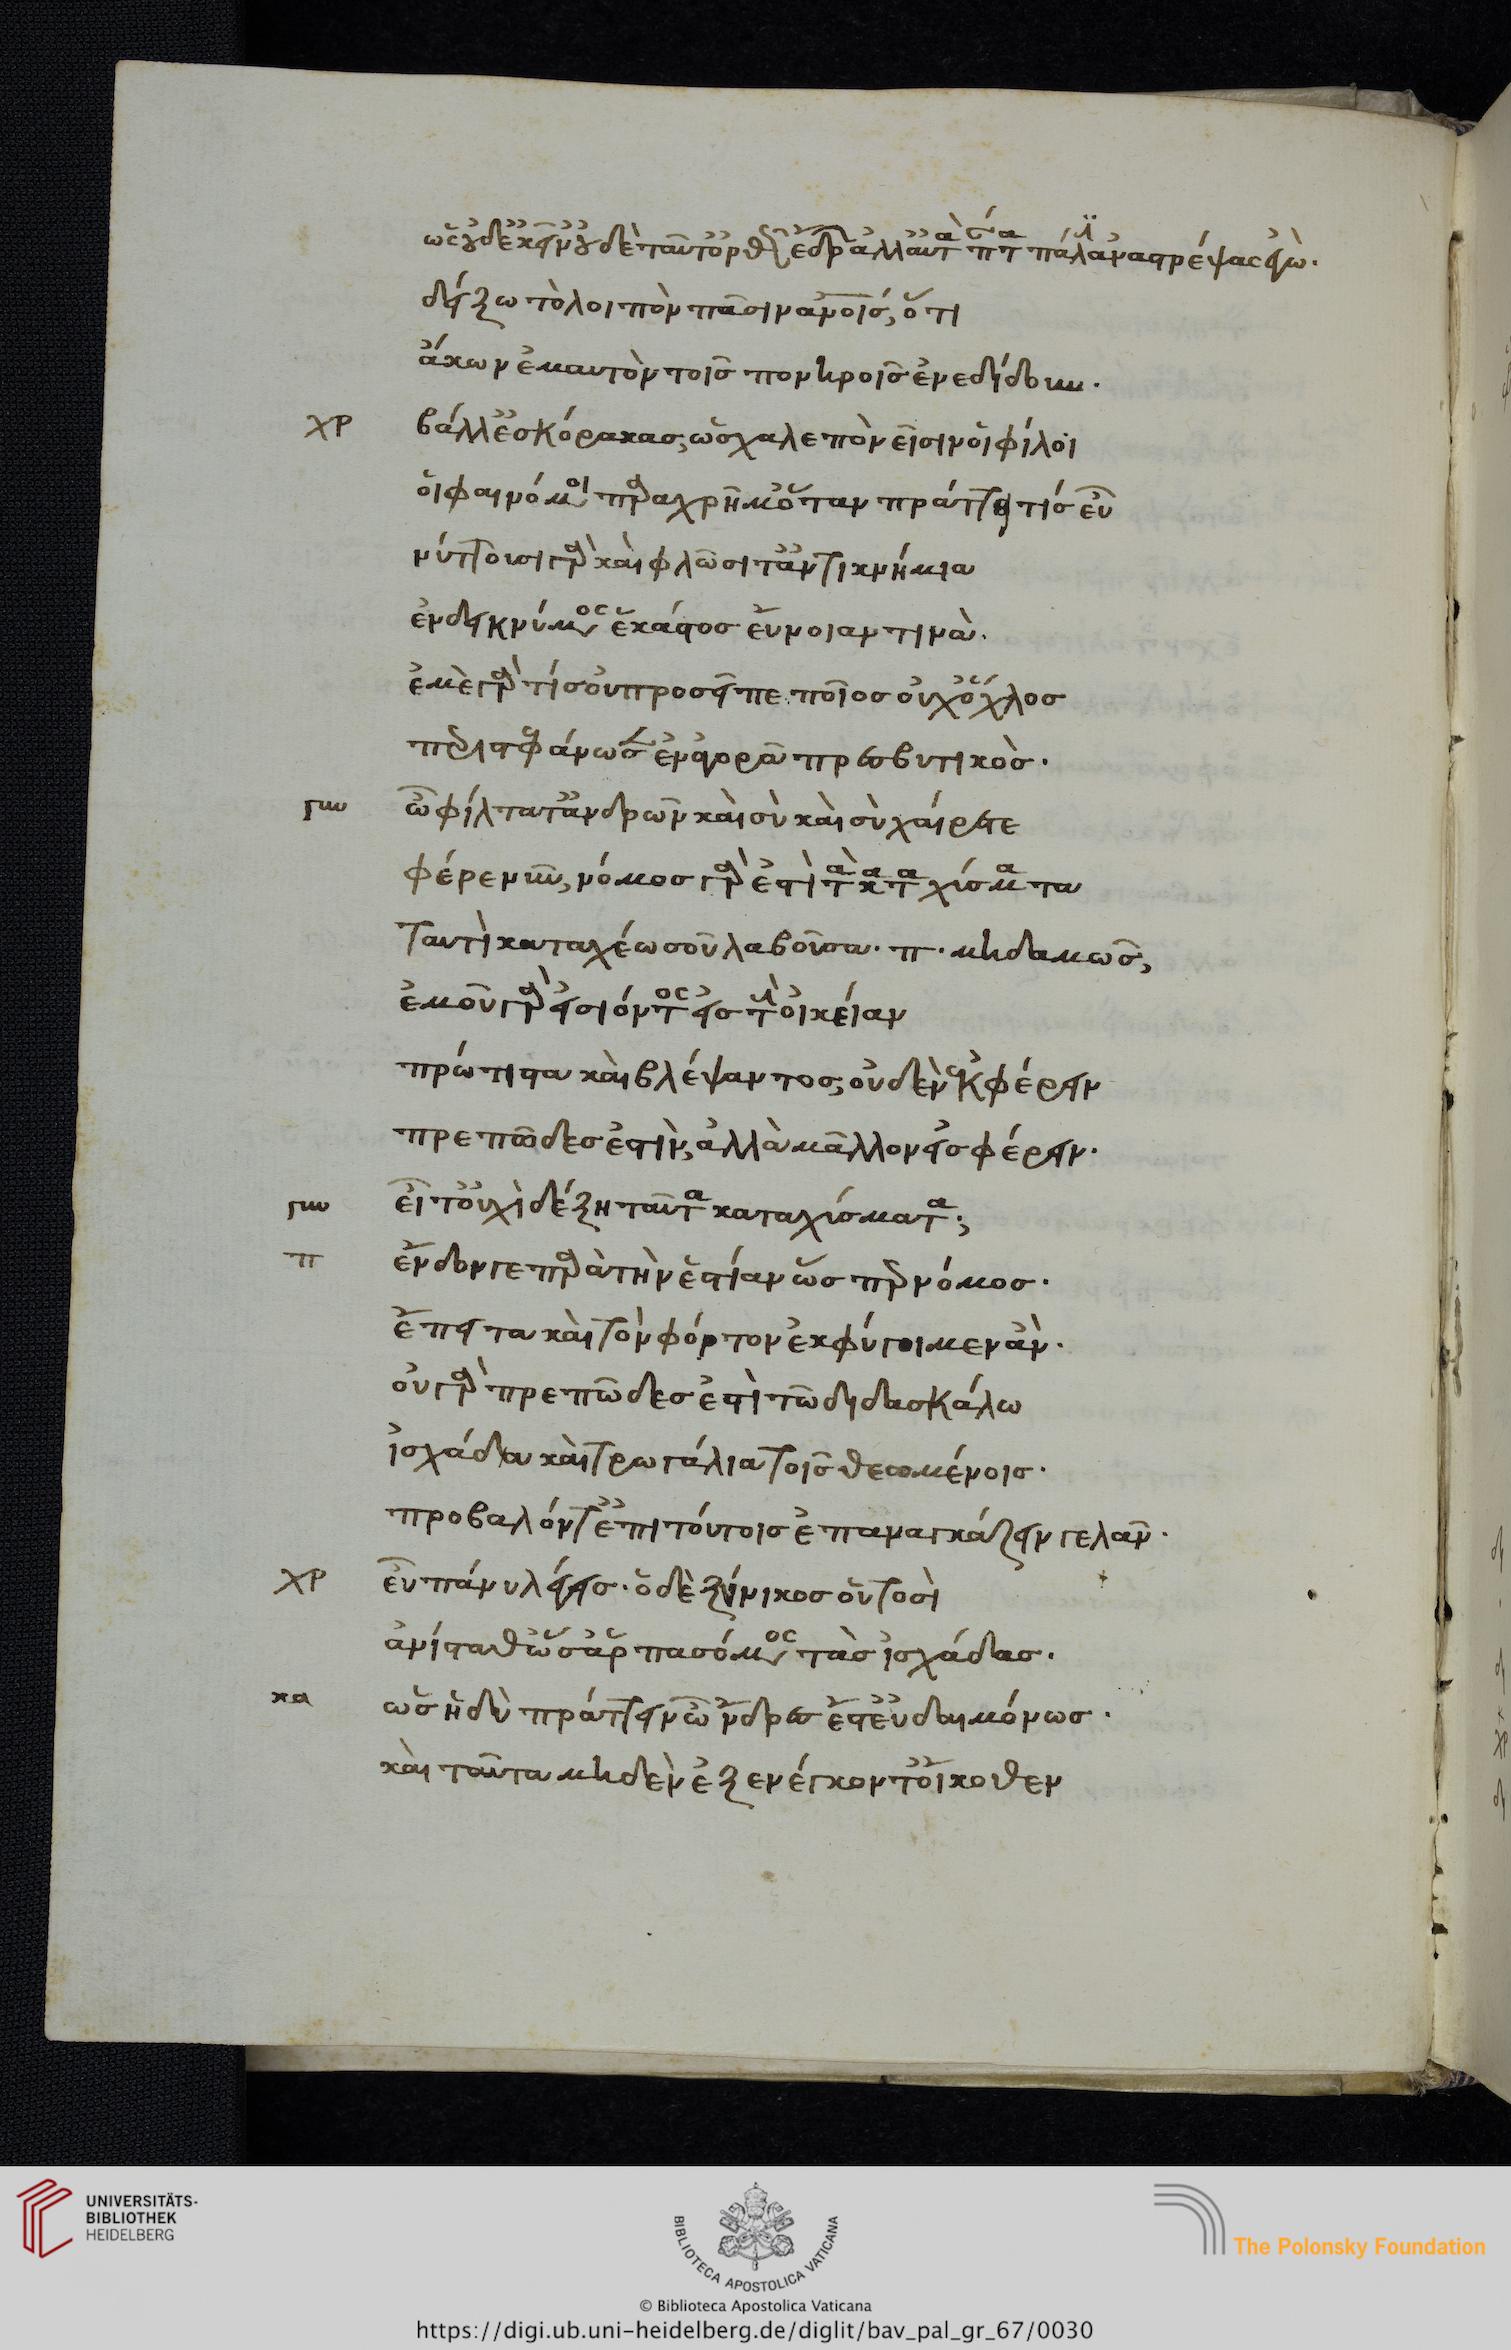 ὡς οὐδ' ἐκεῖν' οὐδὲ ταῦτ' ὀρθῶς ἔδρων· ἀλλ' αὐτὰ πάντα πάλιν ἀναστρέψας ἐγὼ.
δείξω τὸ λοιπὸν πᾶσιν ἀν̅οις, ὅτι
ἄκων ἐμαυτὸν τοῖς πονηροῖς ἐνεδίδουν.
χρ βάλλ' ἐς κόρακας, ὡς χαλεπὸν εἰσιν οἱ φίλοι
οἱ φαινόμενοι παραχρῆμ' ὅταν πράττῃ τίς εὖ
νύττουσι γὰρ καὶ φλῶσι τἀντικνήμια
ἐνδεικνύμενος ἕκαστος εὔνοιαν τινὰ.
ἐμὲ γὰρ τίς οὐ προσεῖπε ποῖος οὐχ ὄχλος
περιεστεφάνωσεν ἐν ἀγορᾶ πρεσβυτικὸς.
γυν ὦ φίλτατ' ἀνδρῶν καὶ σὺ καὶ σὺ χαίρετε
φέρε νῦν, νόμος γὰρ ἐστὶ τὰ καταχίσματα
ταυτὶ καταχέω σοῦ λαβοῦσα. π. μηδαμῶς,
ἐμοῦ γὰρ εἰσιόντος εἰς τὴν οἰκείαν
πρώτιστα καὶ βλέψαντος, οὐδὲν ἐκφέρειν
πρεπῶδες ἐστὶν, ἀλλὰ μᾶλλον εἰσφέρειν.
γυν εἶτ' οὐχὶ δέξη ταῦτα καταχίσματα;
π ἔνδον γε παρὰ τὴν ἑστίαν ὥσπερ νόμος.
ἔπειτα καὶ τὸν φόρτον ἐκφύγοιμεν ἀν.
οὐ γὰρ πρεπῶδες ἐστὶ τῶ διδασκάλω
ἰσχάδια καὶ τρωγάλια τοῖς θεωμένοις.
προβαλόντ' ἐπὶ τούτοις ἐπαναγκάζειν γελᾶν.
χρ εὖ πάνυ λέγεις. ὁ δὲ ξύνικος οὑτοσὶ
ἀνίσταθ' ὡς ἁρπασόμενος τὰς ἰσχάδας.
κα ὡς ἡδὺ πράττειν ὦ 'νδρες ἔστ' εὐδαιμόνως.
καὶ ταῦτα μηδὲν ἐξενέγκοντ' οἴκοθεν
UNIVERSITÄTS-
BIBLIOTHEK
HEIDELBERG
BIBLIOTECA APOSTOLICA VATICANA
The Polonsky Foundation
© Biblioteca Apostolica Vaticana
https://digi.ub.uni-heidelberg.de/diglit/bav_pal_gr_67/0030